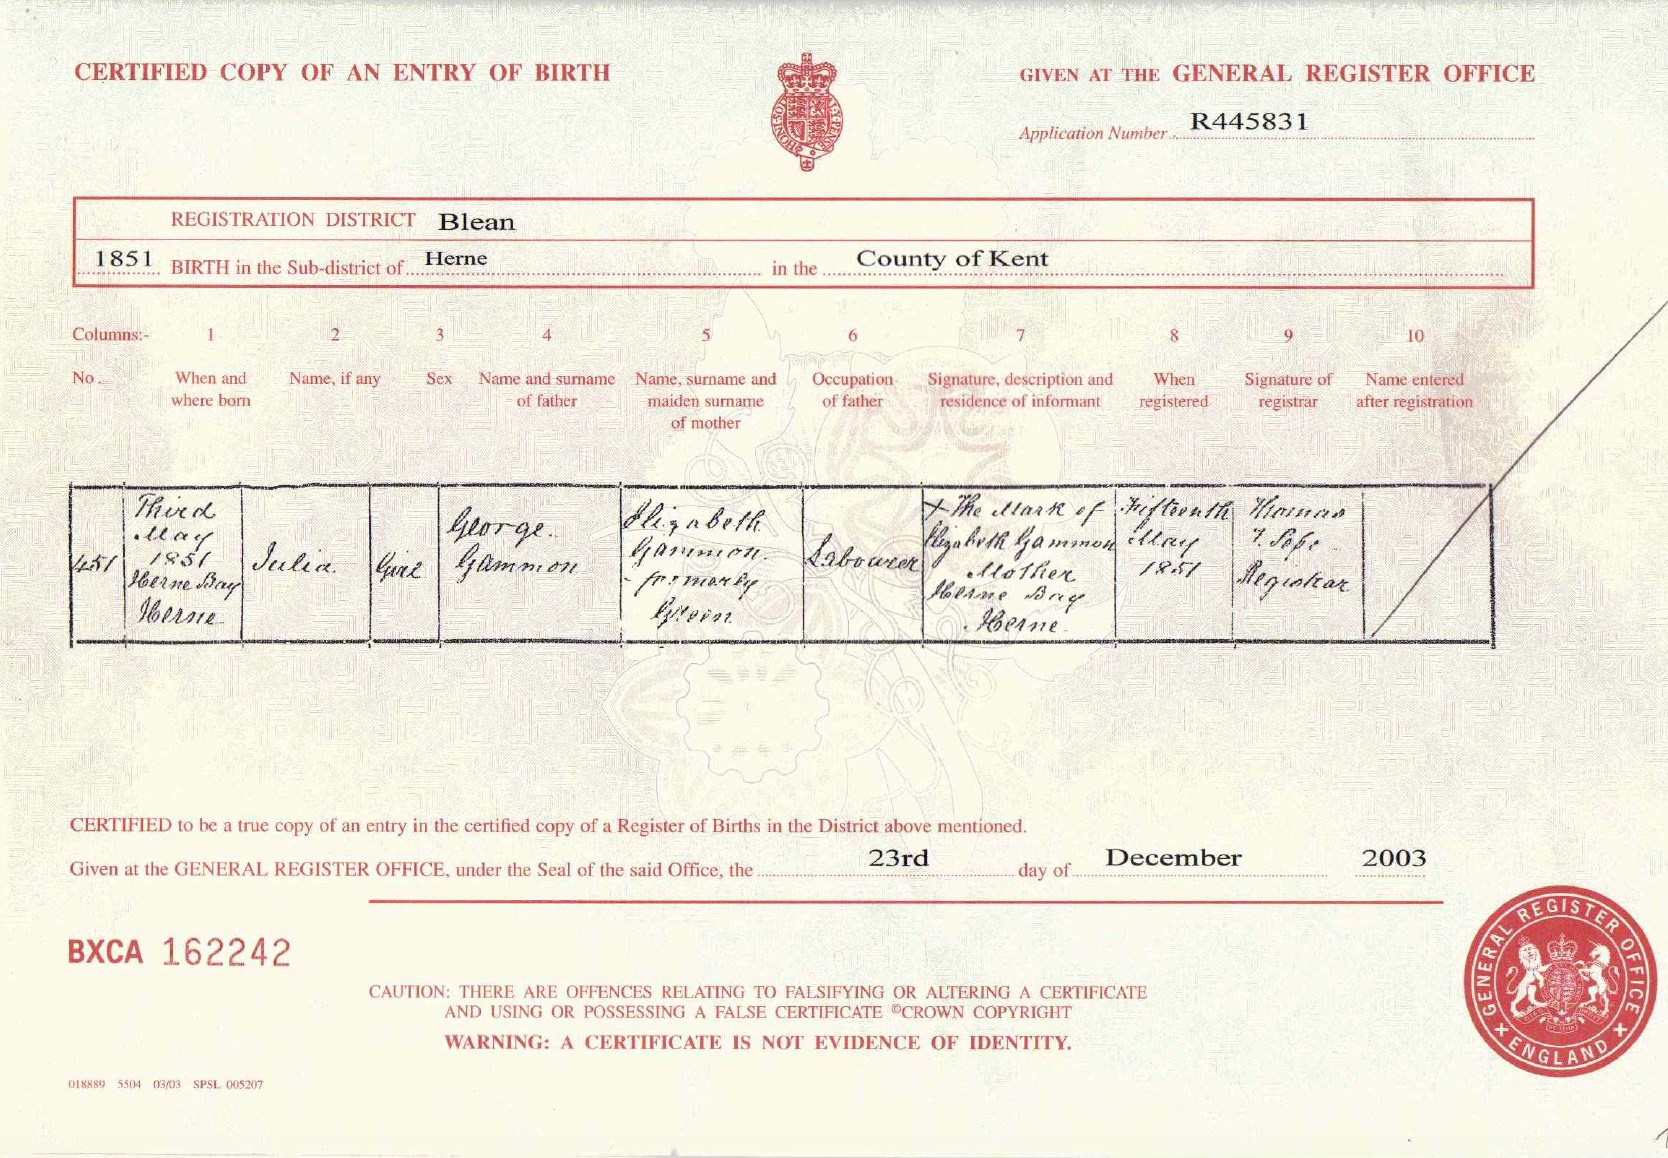 CERTIFIED COPY OF AN ENTRY OF BIRTH
GIVEN AT THE GENERAL REGISTER OFFICE
Application Number R445831
REGISTRATION DISTRICT Blean
1851 BIRTH in the Sub-district of Herne in the County of Kent
Columns:- 1 2 3 4 5 6 7 8 9 10
No. When and where born
Name, if any
Sex
Name and surname of father
Name, surname and maiden surname of mother
Occupation of father
Signature, description and residence of informant
When registered
Signature of registrar
Name entered after registration
451
Third
May
1851
Herne Bay
Herne
Julia
Girl
George
Gammon
Elizabeth
Gammon
formerly
Green
Labourer
X The Mark of
Elizabeth Gammon
Mother
Herne Bay
Herne
Fifteenth
May
1851
Thomas
Registrar
CERTIFIED to be a true copy of an entry in the certified copy of a Register of Births in the District above mentioned.
Given at the GENERAL REGISTER OFFICE, under the Seal of the said Office, the 23rd day of December 2003
BXCA 162242
CAUTION: THERE ARE OFFENCES RELATING TO FALSIFYING OR ALTERING A CERTIFICATE
AND USING OR POSSESSING A FALSE CERTIFICATE ©CROWN COPYRIGHT
WARNING: A CERTIFICATE IS NOT EVIDENCE OF IDENTITY.
GENERAL REGISTER OFFICE
ENGLAND
018889 5504 03/03 SPSL 005207